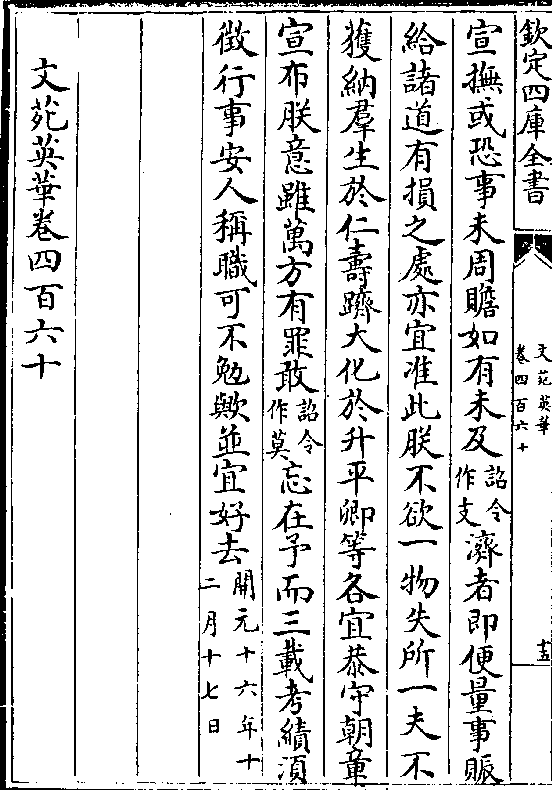 欽定四庫全書
文苑英華
卷四百六十
十五
宣撫或恐事未周贍如有未及詔令作支濟者即便量事賑
給諸道有損之處亦宜准此朕不欲一物失所一夫不
獲納羣生於仁壽躋大化於升平卿等各宜恭守朝章
宣布朕意雖萬方有罪敢詔令作莫忘在予而三載考績須
徴行事安人稱職可不勉歟並宜好去開元十六年十二月十七日
文苑英華卷四百六十